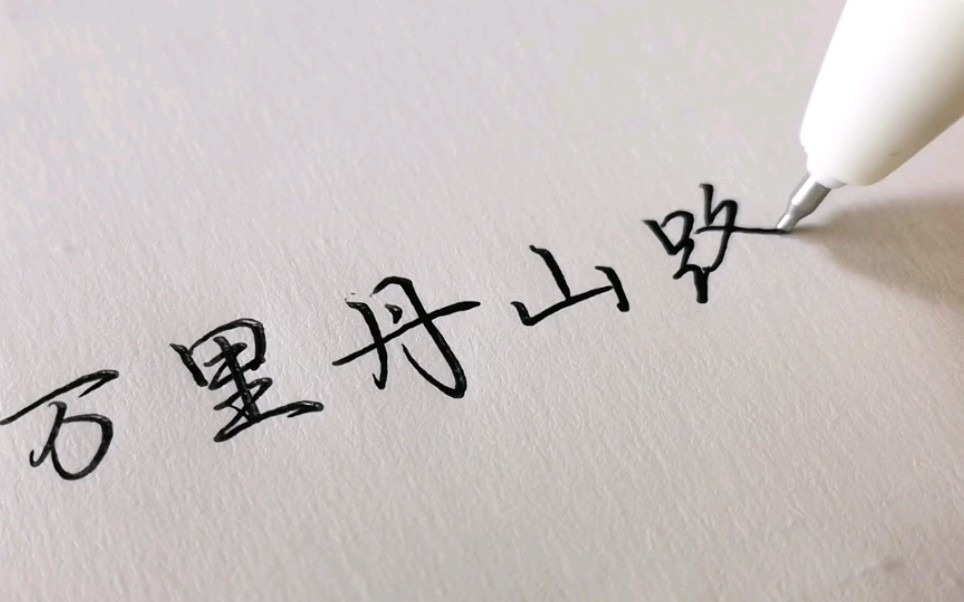 万里丹山路